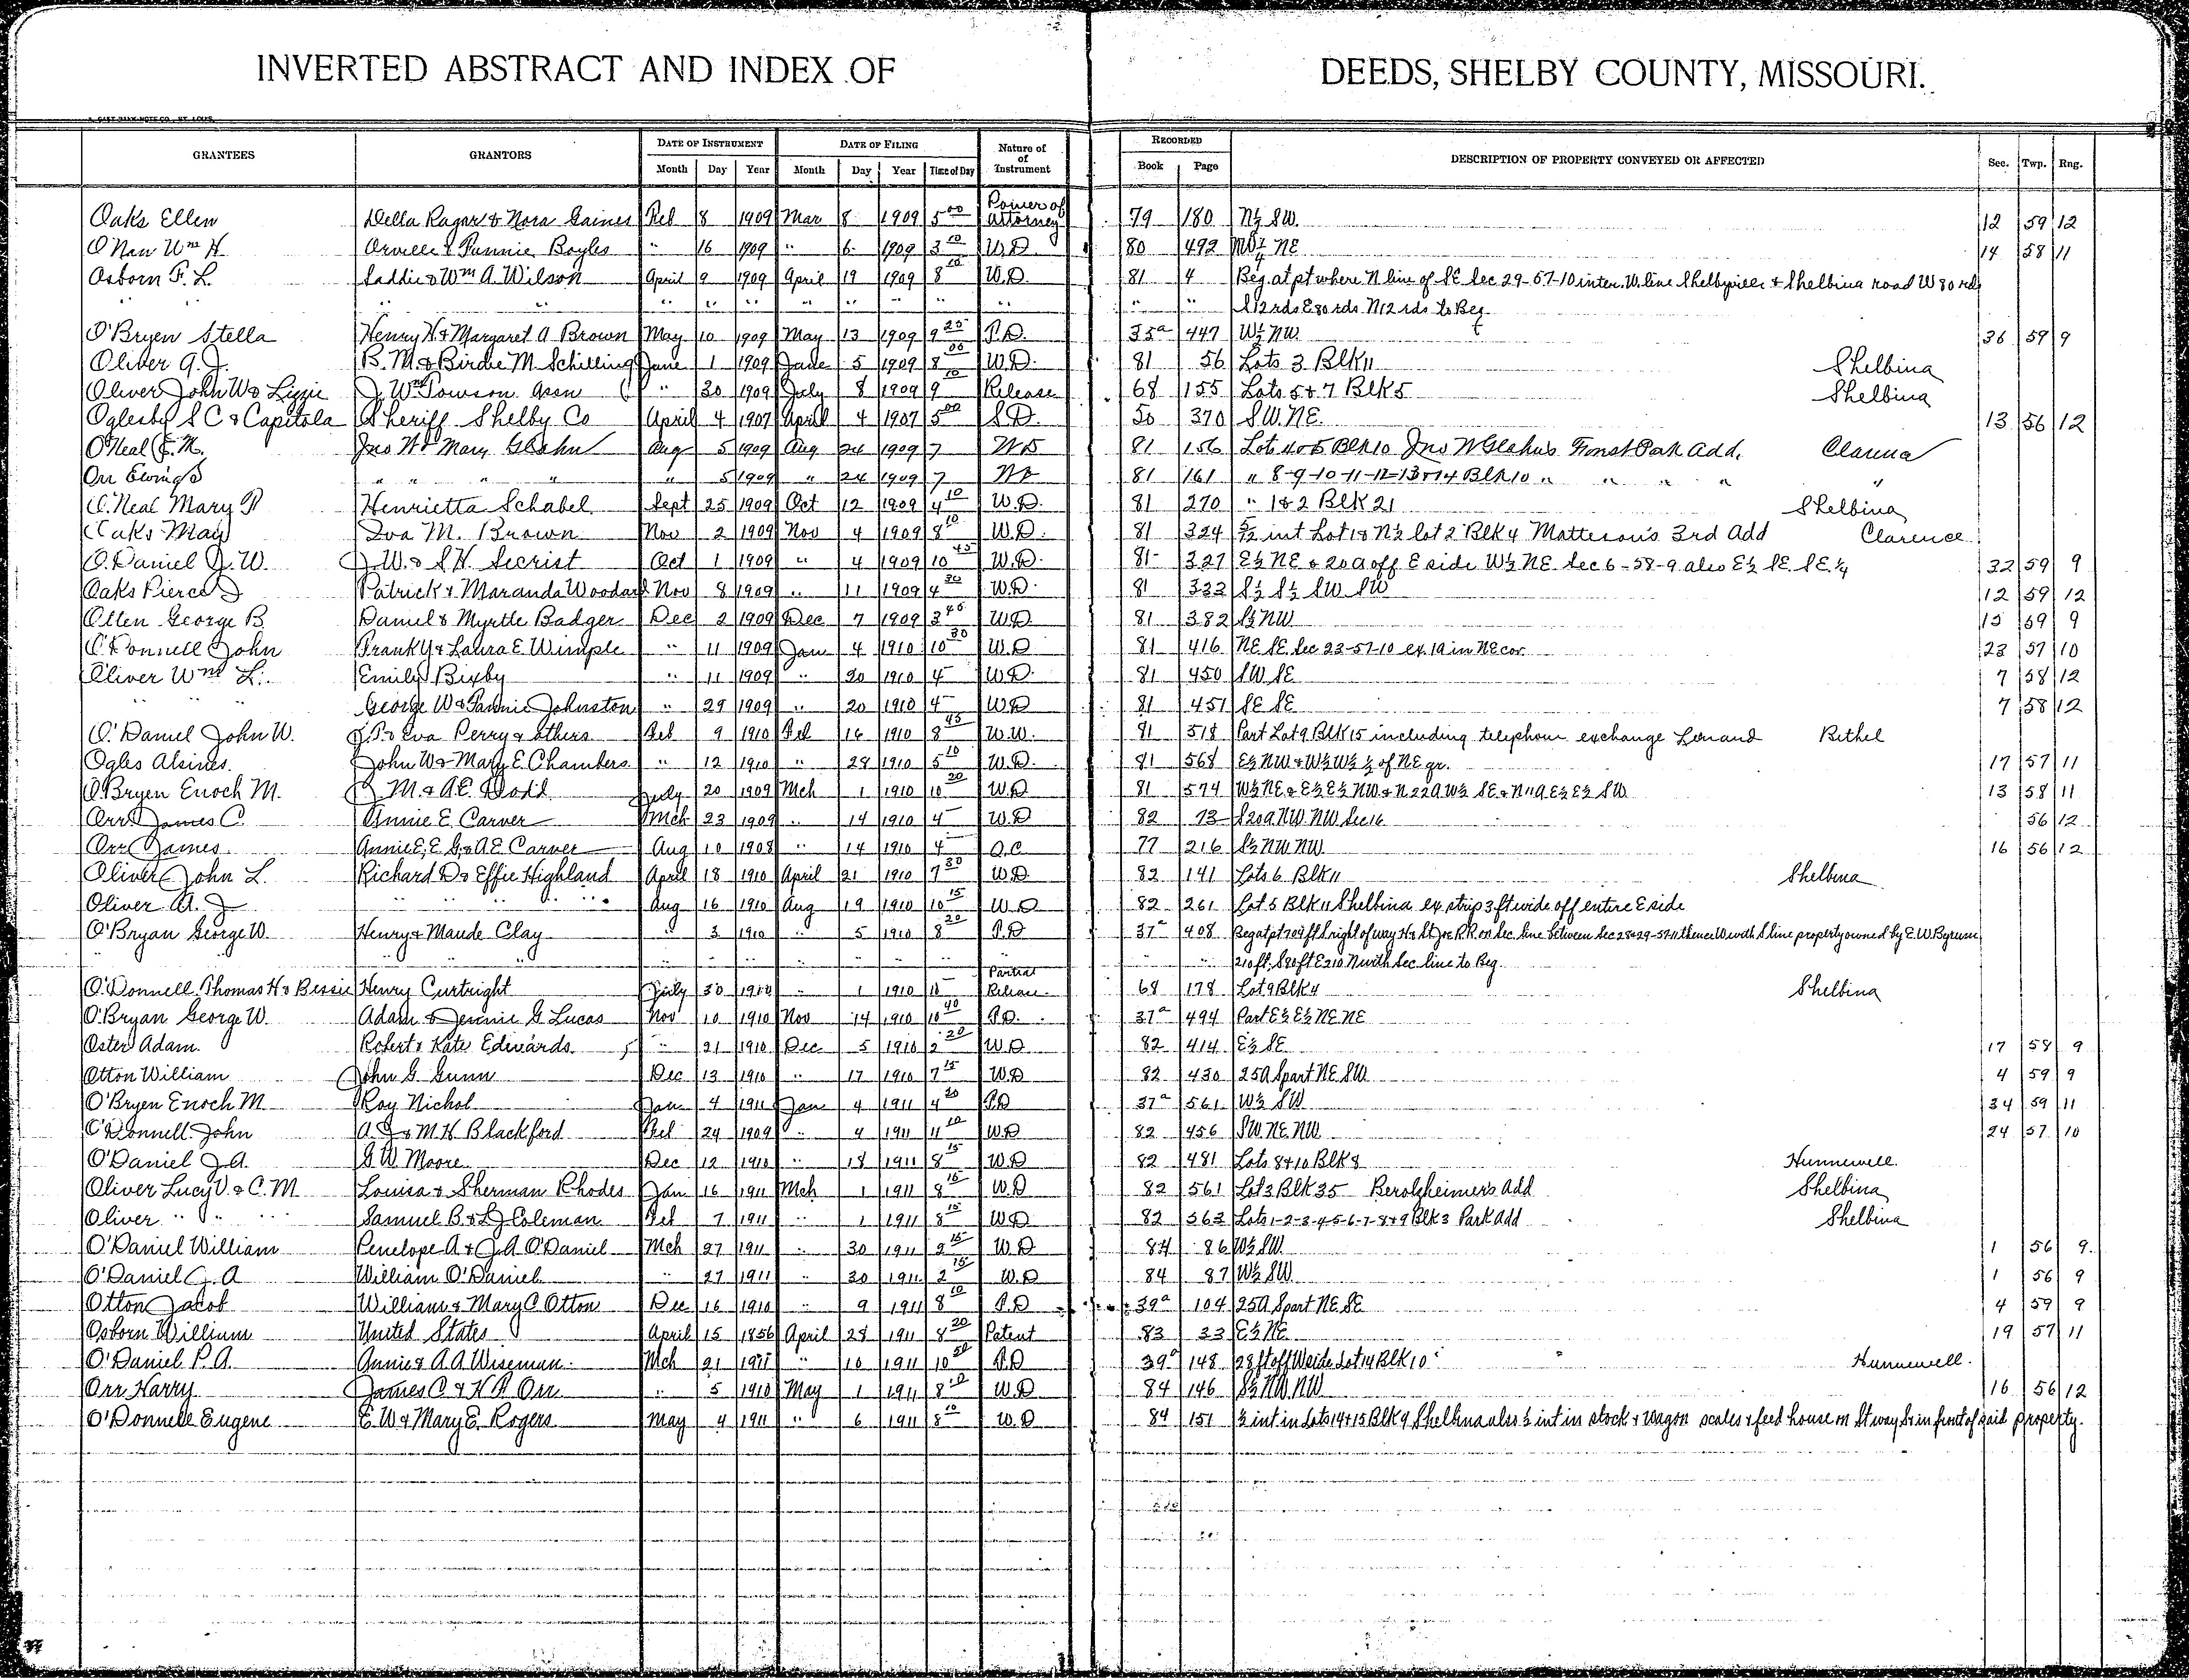 INVERTED ABSTRACT AND INDEX OF DEEDS, SHELBY COUNTY, MISSOURI.
GRANTEES GRANTORS DATE OF INSTRUMENT DATE OF FILING Nature of Instrument RECORDED DESCRIPTION OF PROPERTY CONVEYED OR AFFECTED Sec. Twp. Rng.
Month Day Year Month Day Year Time of Day Book Page
Oaks Ellen Della Ragar & Nora Gaines Feb 8 1909 Mar 8 1909 5 00 Power of Attorney 79 180 N½ SW. 12 59 12
Wm H. Orville & Fannie Boyles " 16 1909 " 6 1909 3 10 W.D. 80 492 NE 14 58 11
Osborn F. L. Saddie & Wm A. Wilson April 9 1909 April 19 1909 8 10 W.D. 81 4 Beg. at pt where N line of SE Sec 29-57-10 inter. W. line Shelbyville & Shelbina road W 80 rds
" " " " " " " " " " " " S 12 rds E 80 rds N 12 rds to Beg.
O'Bryen Stella Henry H. & Margaret A Brown May 10 1909 May 13 1909 9 25 35a 447 W½ NW. 36 59 9
Oliver A. J. B. M. & Birdie M. Schilling June 1 1909 June 5 1909 8 00 W.D. 81 56 Lots 3 Blk 11 Shelbina
Oliver John W & Lizzie J. Wm Towson " 30 1909 July 8 1909 9 10 Release 68 155 Lots 5 & 7 Blk 5 Shelbina
Oglesby S C & Capitola Sheriff Shelby Co April 4 1907 April 4 1907 5 00 S.D. 50 370 S.W. NE. 13 56 12
O'Neal E. M. Jno W & Mary Glahn Aug 5 1909 Aug 24 1909 7 WD 81 156 Lots 4 & 5 Blk 10 Jno W Glahn's Forest Park Add.
Orr Ewing S " " " " " 5 1909 " 24 1909 7 81 161 " 8-9-10-11-12-13 & 14 Blk 10 " " " " "
O'Neal Mary P Henrietta Schabel Sept 25 1909 Oct 12 1909 4 10 W.D. 81 270 " 1 & 2 Blk 21 Shelbina
Oaks May Iva M. Brown Nov 2 1909 Nov 4 1909 8 10 W.D. 81 324 int Lot 1 & N½ lot 2 Blk 4 Matteson's 3rd Add Clarence
O'Daniel J. W. J. W. & S. H. Secrist Oct 1 1909 " 4 1909 10 45 W.D. 81 327 E½ NE & 20 A off E side W½ NE. Sec 6-58-9 also E½ SE. SE.¼ 32 59 9
Oaks Pierce J Patrick & Maranda Woodard Nov 8 1909 " 11 1909 4 30 W.D. 81 333 S½ S½ SW SW 12 59 12
Otten George B. Daniel & Myrtle Badger Dec 2 1909 Dec 7 1909 3 45 WD 81 382 S½ NW 59 9
O'Donnell John Frank Y & Laura E. Wimple " 11 1909 Jan 4 1910 10 30 W.D 81 416 NE SE Sec 23-57-10 ex. 1 A in NE cor. 23 57 10
Oliver Wm L. Emily Bixby " 11 1909 " 20 1910 4 W.D. 81 450 SW SE 7 58 12
" " George W & Fannie Johnston " 29 1909 " 20 1910 4 WD 81 451 SE SE 7 58 12
O'Daniel John W. & Eva Perry & others Feb 9 1910 Feb 16 1910 8 45 W.W. 81 518 Part Lot 9 Blk 15 including telephone exchange Leonard Bethel
Ogles Alsines John W & Mary E. Chambers " 12 1910 " 28 1910 5 10 W.D. 81 568 E½ NW & W½ W½ ½ of NE qr. 17 57 11
O'Bryen Enoch M. J. M. & A.E. Dodd July 20 1909 Mch 1 1910 10 20 W.D 81 574 W½ NE & E½ E½ NW & N 22 A W½ SE & N 11 A E½ E½ SW 13 58 11
Orr James C. Annie E. Carver Mch 23 1909 " 14 1910 4 W.D 82 73 S 20 A NW. NW Sec 16 56 12
Orr James Annie E, E. G, & A.E. Carver Aug 10 1908 " 14 1910 4 Q.C. 77 216 S½ NW NW 16 56 12
Oliver John L. Richard D & Effie Highland April 18 1910 April 21 1910 7 30 WD 82 141 Lots 6 Blk 11 Shelbina
Oliver A. J " " " " Aug 16 1910 Aug 19 1910 10 15 W.D 82 261 Lot 5 Blk 11 Shelbina ex strip 3 ft wide off entire E side
O'Bryan George W. Henry & Maude Clay " 3 1910 " 5 1910 8 20 37a 408 Beg at pt 704 ft S right of way H & St Joe R.R. on Sec line between Sec 28 & 29-57-11 thence W with S line property owned by E. W Byrum
" " " " " " " " " " " 210 ft, S 80 ft E 210 N with Sec line to Beg.
O'Donnell Thomas H & Bessie Henry Curtright July 30 1910 " 1 1910 10 Partial Release 68 178 Lot 9 Blk 4 Shelbina
O'Bryan George W. Adam & Jennie G Lucas Nov 10 1910 Nov 14 1910 10 40 37a 494 Part E½ E½ NE. NE
Oster Adam. Robert & Kate Edwards " 21 1910 Dec 5 1910 2 20 W.D 82 414 E½ SE 17 58 9
Otton William John G. Gunn Dec 13 1910 " 17 1910 7 15 WD 82 430 25 A S part NE SW 4 59 9
O'Bryen Enoch M Roy Nichol Jan 4 1911 Jan 4 1911 4 20 37a 561 W½ SW 34 59 11
O'Donnell John & M.H Blackford Feb 24 1909 " 4 1911 11 10 WD 82 456 SW. NE. NW 24 57 10
O'Daniel J.A. G. W. Moore Dec 12 1910 " 18 1911 8 15 W.D 82 481 Lots 8 & 10 Blk 8 Hunnewell.
Oliver Lucy V. & C. M Louisa & Sherman Rhodes Jan 16 1911 Mch 1 1911 8 15 W.D 82 561 Lot 3 Blk 35 Berolzheimer's Add Shelbina
Oliver " " " Samuel B & Coleman Feb 7 1911 " 1 1911 8 15 W.D. 82 563 Lots 1-2-3-4-5-6-7-8 & 9 Blk 3 Park Add Shelbina
O'Daniel William Penelope A & J.A O'Daniel Mch 27 1911 " 30 1911 2 15 W.D 84 86 W½ SW. 1 56 9
O'Daniel J. A William O'Daniel " 27 1911 " 30 1911 2 15 W.D 84 87 W½ SW 1 56 9
Otton Jacob William & Mary C Otton Dec 16 1910 " 9 1911 8 10 39a 104 25 A S part NE SE 4 59 9
Osborn William United States April 15 1856 April 28 1911 8 20 Patent 83 33 E½ NE 19 57 11
O'Daniel P.A. Annie & A.A Wiseman Mch 21 1911 " 10 1911 10 39a 148 28 ft off W side Lot 14 Blk 10 Hunnewell.
Orr Harry James C & Orr " 5 1910 May 1 1911 8 10 W.D 84 146 S½ NW NW 16 56 12
O'Donnell Eugene E. W & Mary E. Rogers May 4 1911 " 6 1911 8 10 W.D 84 151 ½ int in Lots 14 & 15 Blk 9 Shelbina also ½ int in stock & wagon scales & feed house on St way &c in front of said property.